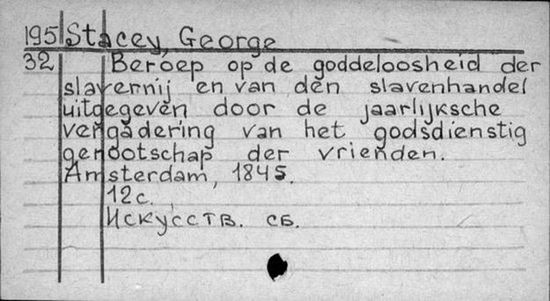 195 Stacey, George
32 Beroep op de goddeloosheid der
slavernij en van den slavenhandel
uitgegeven door de jaarlijksche
vergadering van het godsdienstig
genootschap der vrienden.
Amsterdam, 1845.
12с.
Искусств. сб.